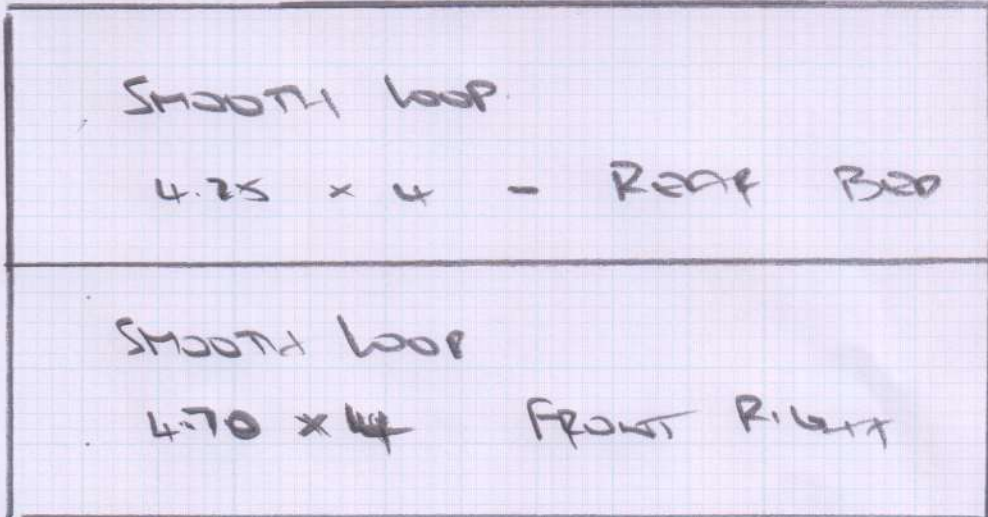 SMOOTH LOOP
4.25 x 4 - REAR BED
SMOOTH LOOP
4.70 x 4 FRONT RIGHT